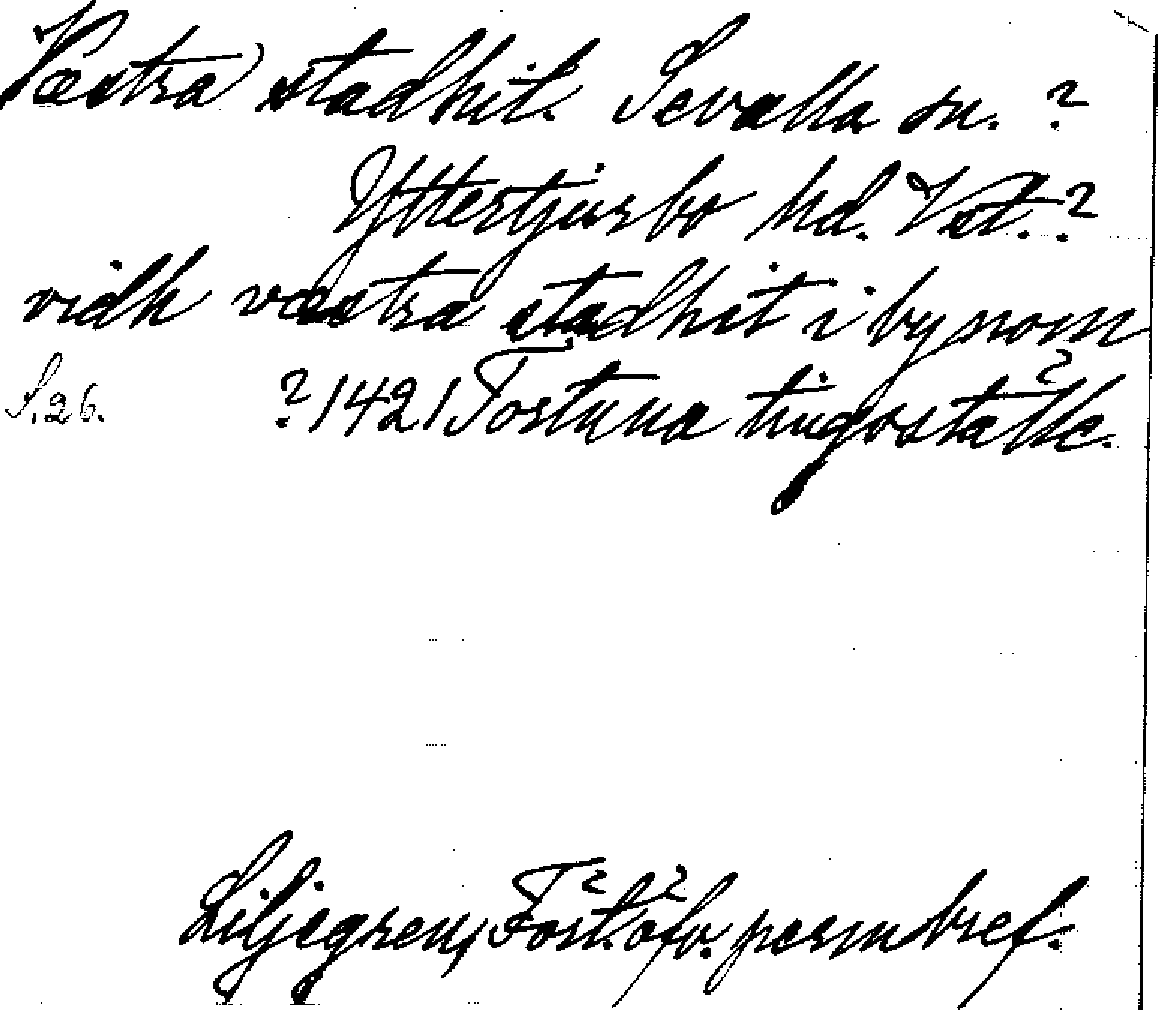 Væstra stadhit. Sevalla sn. ?
Yttertjurbo hd. Vstm. ?
vidh væstra stadhit i bynom
S. 26. ? 1421 Tortuna tingostadhe.
Liljegren, Fört. öfv. permbref.